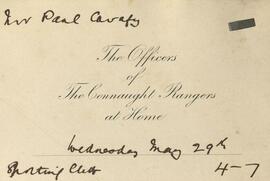 Mr Paul Cavafy
The Officers
of
The Connaught Rangers
at Home
Wednesday May 29th
Sporting Club 4-7